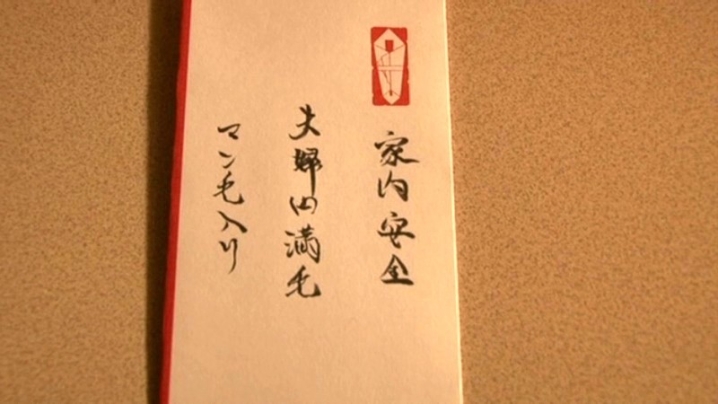 家内安全
夫婦円満毛
マン毛入り